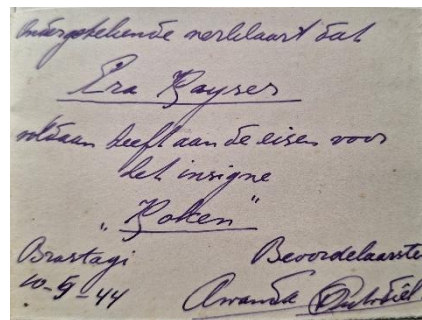 Ondergetekende verklaart dat
Era Kayser
voldaan heeft aan de eisen voor
het insigne
„Koken"
Brastagi Beoordelaarster
10-5-44 Amanda